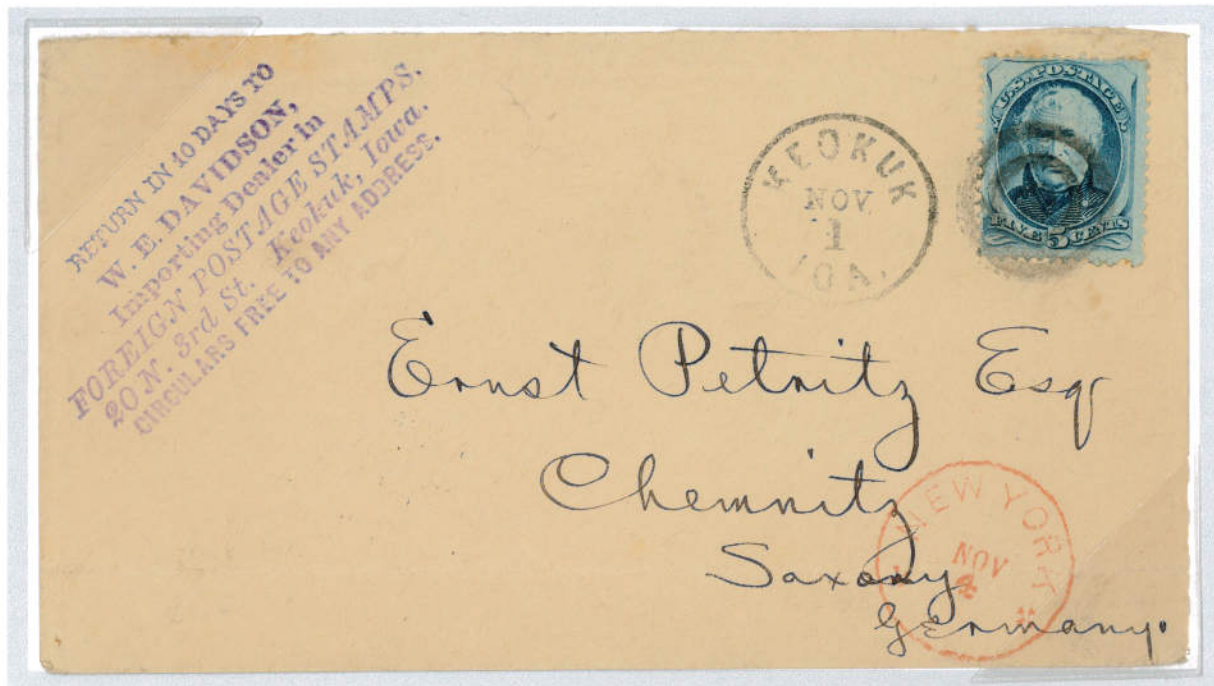 RETURN IN 10 DAYS TO
W. E. DAVIDSON,
Importing Dealer in
FOREIGN POSTAGE STAMPS.
20 N. 3rd St. Keokuk, Iowa.
CIRCULARS FREE TO ANY ADDRESS.
KEOKUK
NOV
1
IOA.
U.S. POSTAGE
FIVE 5 CENTS
Ernst Petritz Esq
Chemnitz
Saxony
Germany.
NEW YORK
NOV